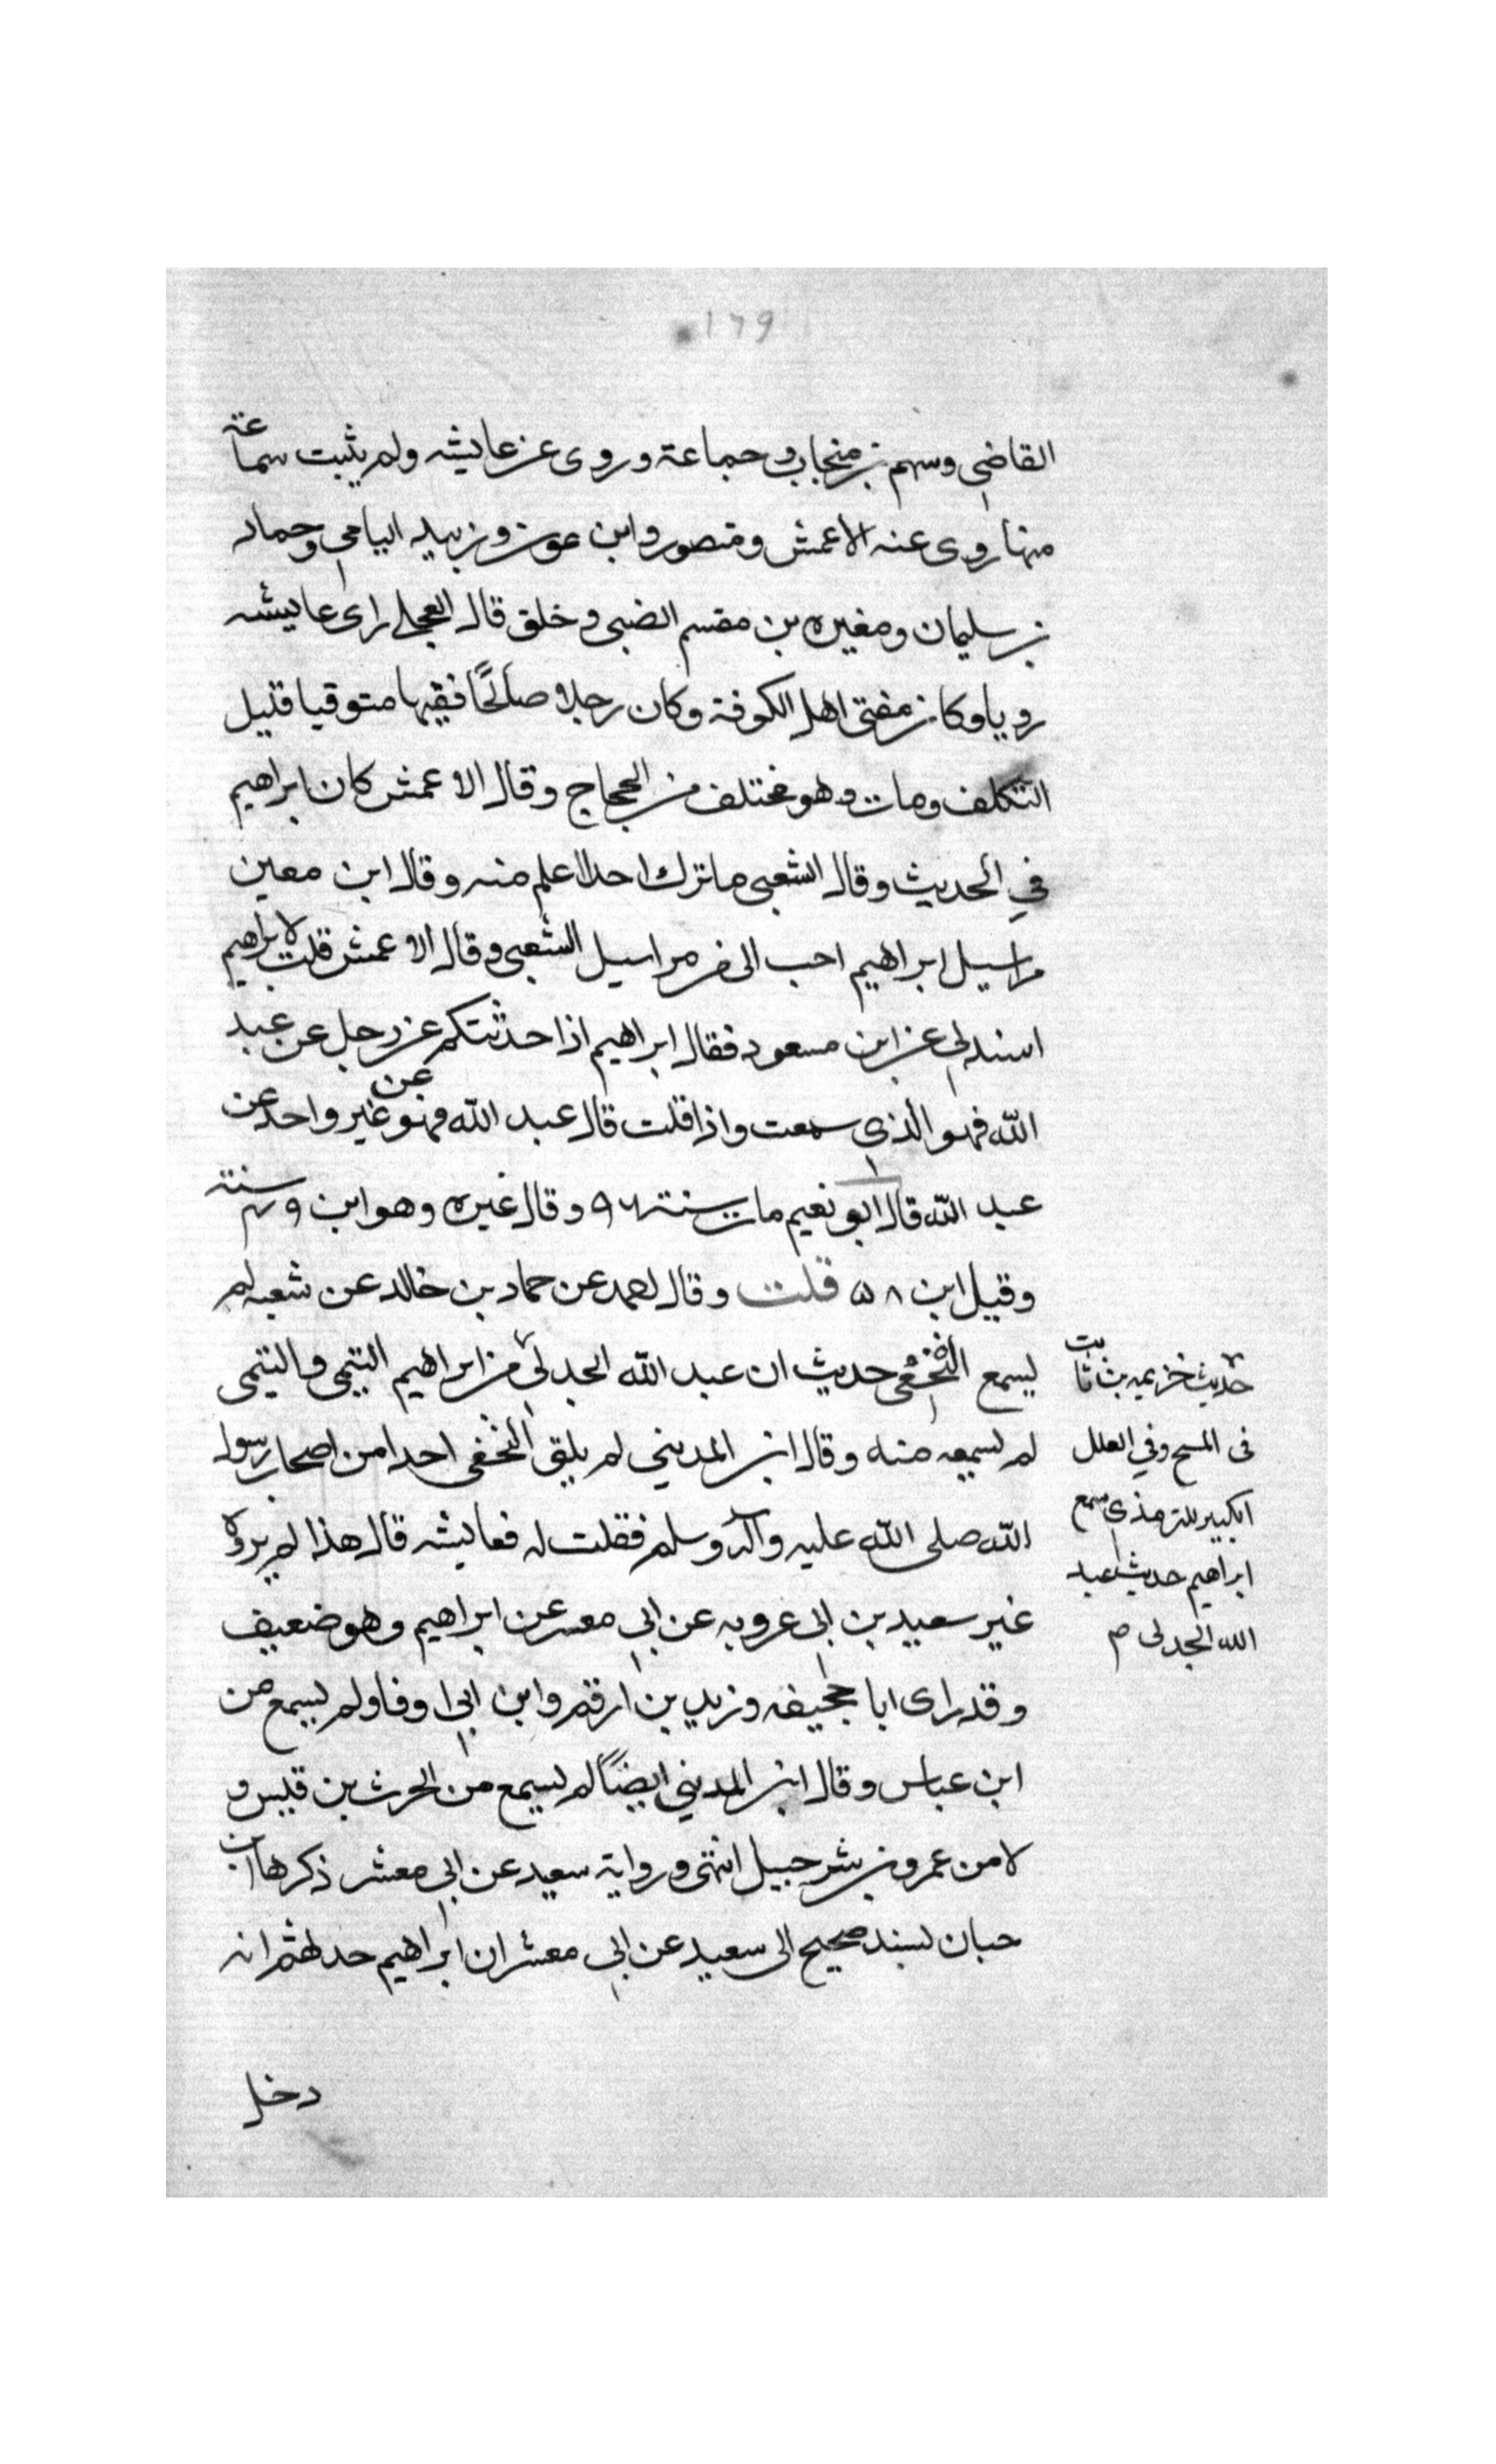 ١٦٩
القاضي وسهم بن منجاب وجماعة وروى عن عايشه ولم يثبت سماعة
منها روى عنه الاعمش ومنصور وابن عون وزبيد اليامي وحماد
بن سليمان ومغيره بن مقسم الضبى وخلق قال العجلي راى عايشه
رويا وكان مفتى اهل الكوفة وكان رجلا صالحًا فقيها متوقيا قليل
التكلف ومات وهو مختلف من الحجاج وقال الاعمش كان ابراهيم
في الحديث وقال الشعبى ما ترك احدا اعلم منه وقال ابن معين
مراسيل ابراهيم احب الى من مراسيل الشعبى وقال الاعمش قلت لابراهيم
اسند لي عن ابن مسعود فقال ابراهيم اذا حدثتكم عن رجل عن عبد
الله فهو الذي سمعت واذا قلت قال عبد الله فهو عن غير واحد عن
عبد الله قال ابو نعيم مات سنة ٩٦ وقال غيره وهو ابن ٤٩ سنة
وقيل ابن ٥٨ قلت وقال احمد عن حماد بن خالد عن شعبه لم
يسمع النخعى حديث ابى عبد الله الجدلي من ابراهيم التيمى والتيمى
لم يسمعه منه وقال ابن المديني لم يلق النخعى احدا من اصحاب رسول
الله صلى الله عليه وآله وسلم فقلت له فعايشه قال هذا لم يروه
غير سعيد بن ابى عروبه عن ابي معشر عن ابراهيم وهو ضعيف
وقد راى ابا جحيفه وزيد بن ارقم وابن ابي اوفا ولم يسمع من
ابن عباس وقال ابن المديني ايضًا لم يسمع من الحرث بن قيس و
لا من عمرو بن شرحبيل انتهى ورواية سعيد عن ابي معشر ذكرها ابن
حبان بسند صحيح الى سعيد عن ابي معشر ان ابراهيم حدثهم انه
دخل
حديث خزيمه بن ثابت
فى المسح وفي العلل
الكبير للترمذي سمع
ابراهيم حديث عبد
الله الجدلى م